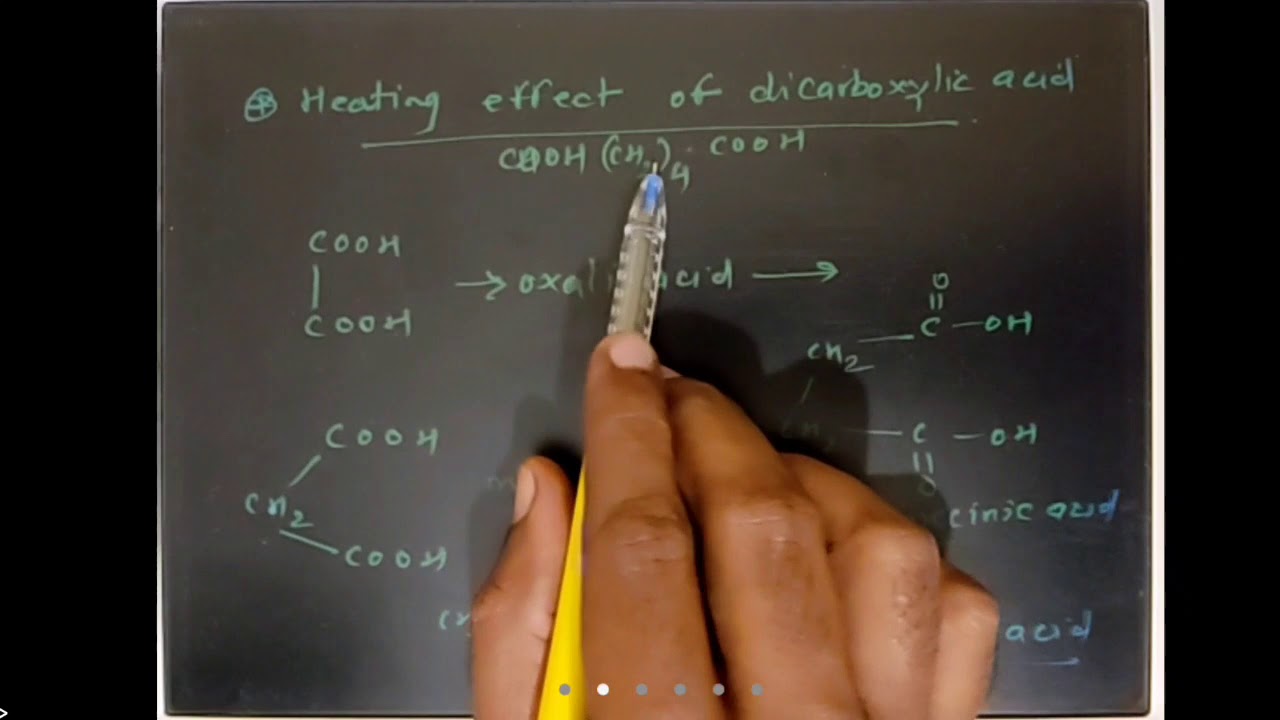 ⊕ Heating effect of dicarboxylic acid
COOH (CH2)4 COOH
COOH
|
COOH
→ oxalic acid →
O
||
CH2 — C — OH
COOH
CH2
COOH
— C — OH
||
O
cinic acid
acid